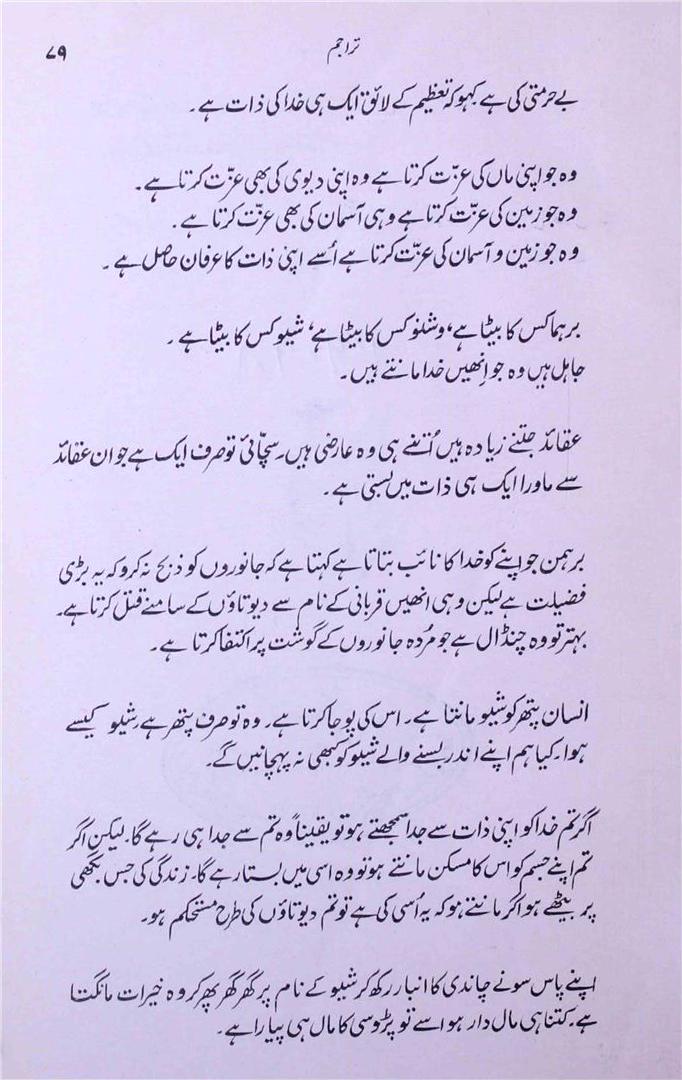 تراجم
۷۹
بے حرمتی کی ہے کہو کہ تعظیم کے لائق ایک ہی خدا کی ذات ہے۔
وہ جو اپنی ماں کی عزّت کرتا ہے وہ اپنی دیوی کی بھی عزّت کرتا ہے۔
وہ جو زمین کی عزّت کرتا ہے وہی آسمان کی بھی عزّت کرتا ہے۔
وہ جو زمین و آسمان کی عزّت کرتا ہے اُسے اپنی ذات کا عرفان حاصل ہے۔
برہما کس کا بیٹا ہے، وشنو کس کا بیٹا ہے، شیو کس کا بیٹا ہے۔
جاہل ہیں وہ جو اِنھیں خدا مانتے ہیں۔
عقائد جتنے زیادہ ہیں اُتنے ہی وہ عارضی ہیں۔ سچّائی تو صرف ایک ہے جو ان عقائد
سے ماورا ایک ہی ذات میں بستی ہے۔
برہمن جو اپنے کو خدا کا نائب بتاتا ہے کہتا ہے کہ جانوروں کو ذبح نہ کرو کہ یہ بڑی
فضیلت ہے لیکن وہی انھیں قربانی کے نام سے دیوتاؤں کے سامنے قتل کرتا ہے۔
بہتر تو وہ چنڈال ہے جو مُردہ جانوروں کے گوشت پر اکتفا کرتا ہے۔
انسان پتھر کو شیو مانتا ہے۔ اس کی پوجا کرتا ہے۔ وہ تو صرف پتھر ہے شیو کیسے
ہوا۔ کیا ہم اپنے اندر بسنے والے شیو کو کبھی نہ پہچانیں گے۔
اگر تم خدا کو اپنی ذات سے جدا سمجھتے ہو تو یقیناً وہ تم سے جدا ہی رہے گا۔ لیکن اگر
تم اپنے جسم کو اس کا مسکن مانتے ہو تو وہ اسی میں بستا رہے گا۔ زندگی کی جس بگھی
پر بیٹھے ہو اگر مانتے ہو کہ یہ اُسی کی ہے تو تم دیوتاؤں کی طرح مستحکم ہو۔
اپنے پاس سونے چاندی کا انبار رکھ کر شیو کے نام پر گھر گھر پھر کر وہ خیرات مانگتا
ہے۔ کتنا ہی مال دار ہو اسے تو پڑوسی کا مال ہی پیارا ہے۔